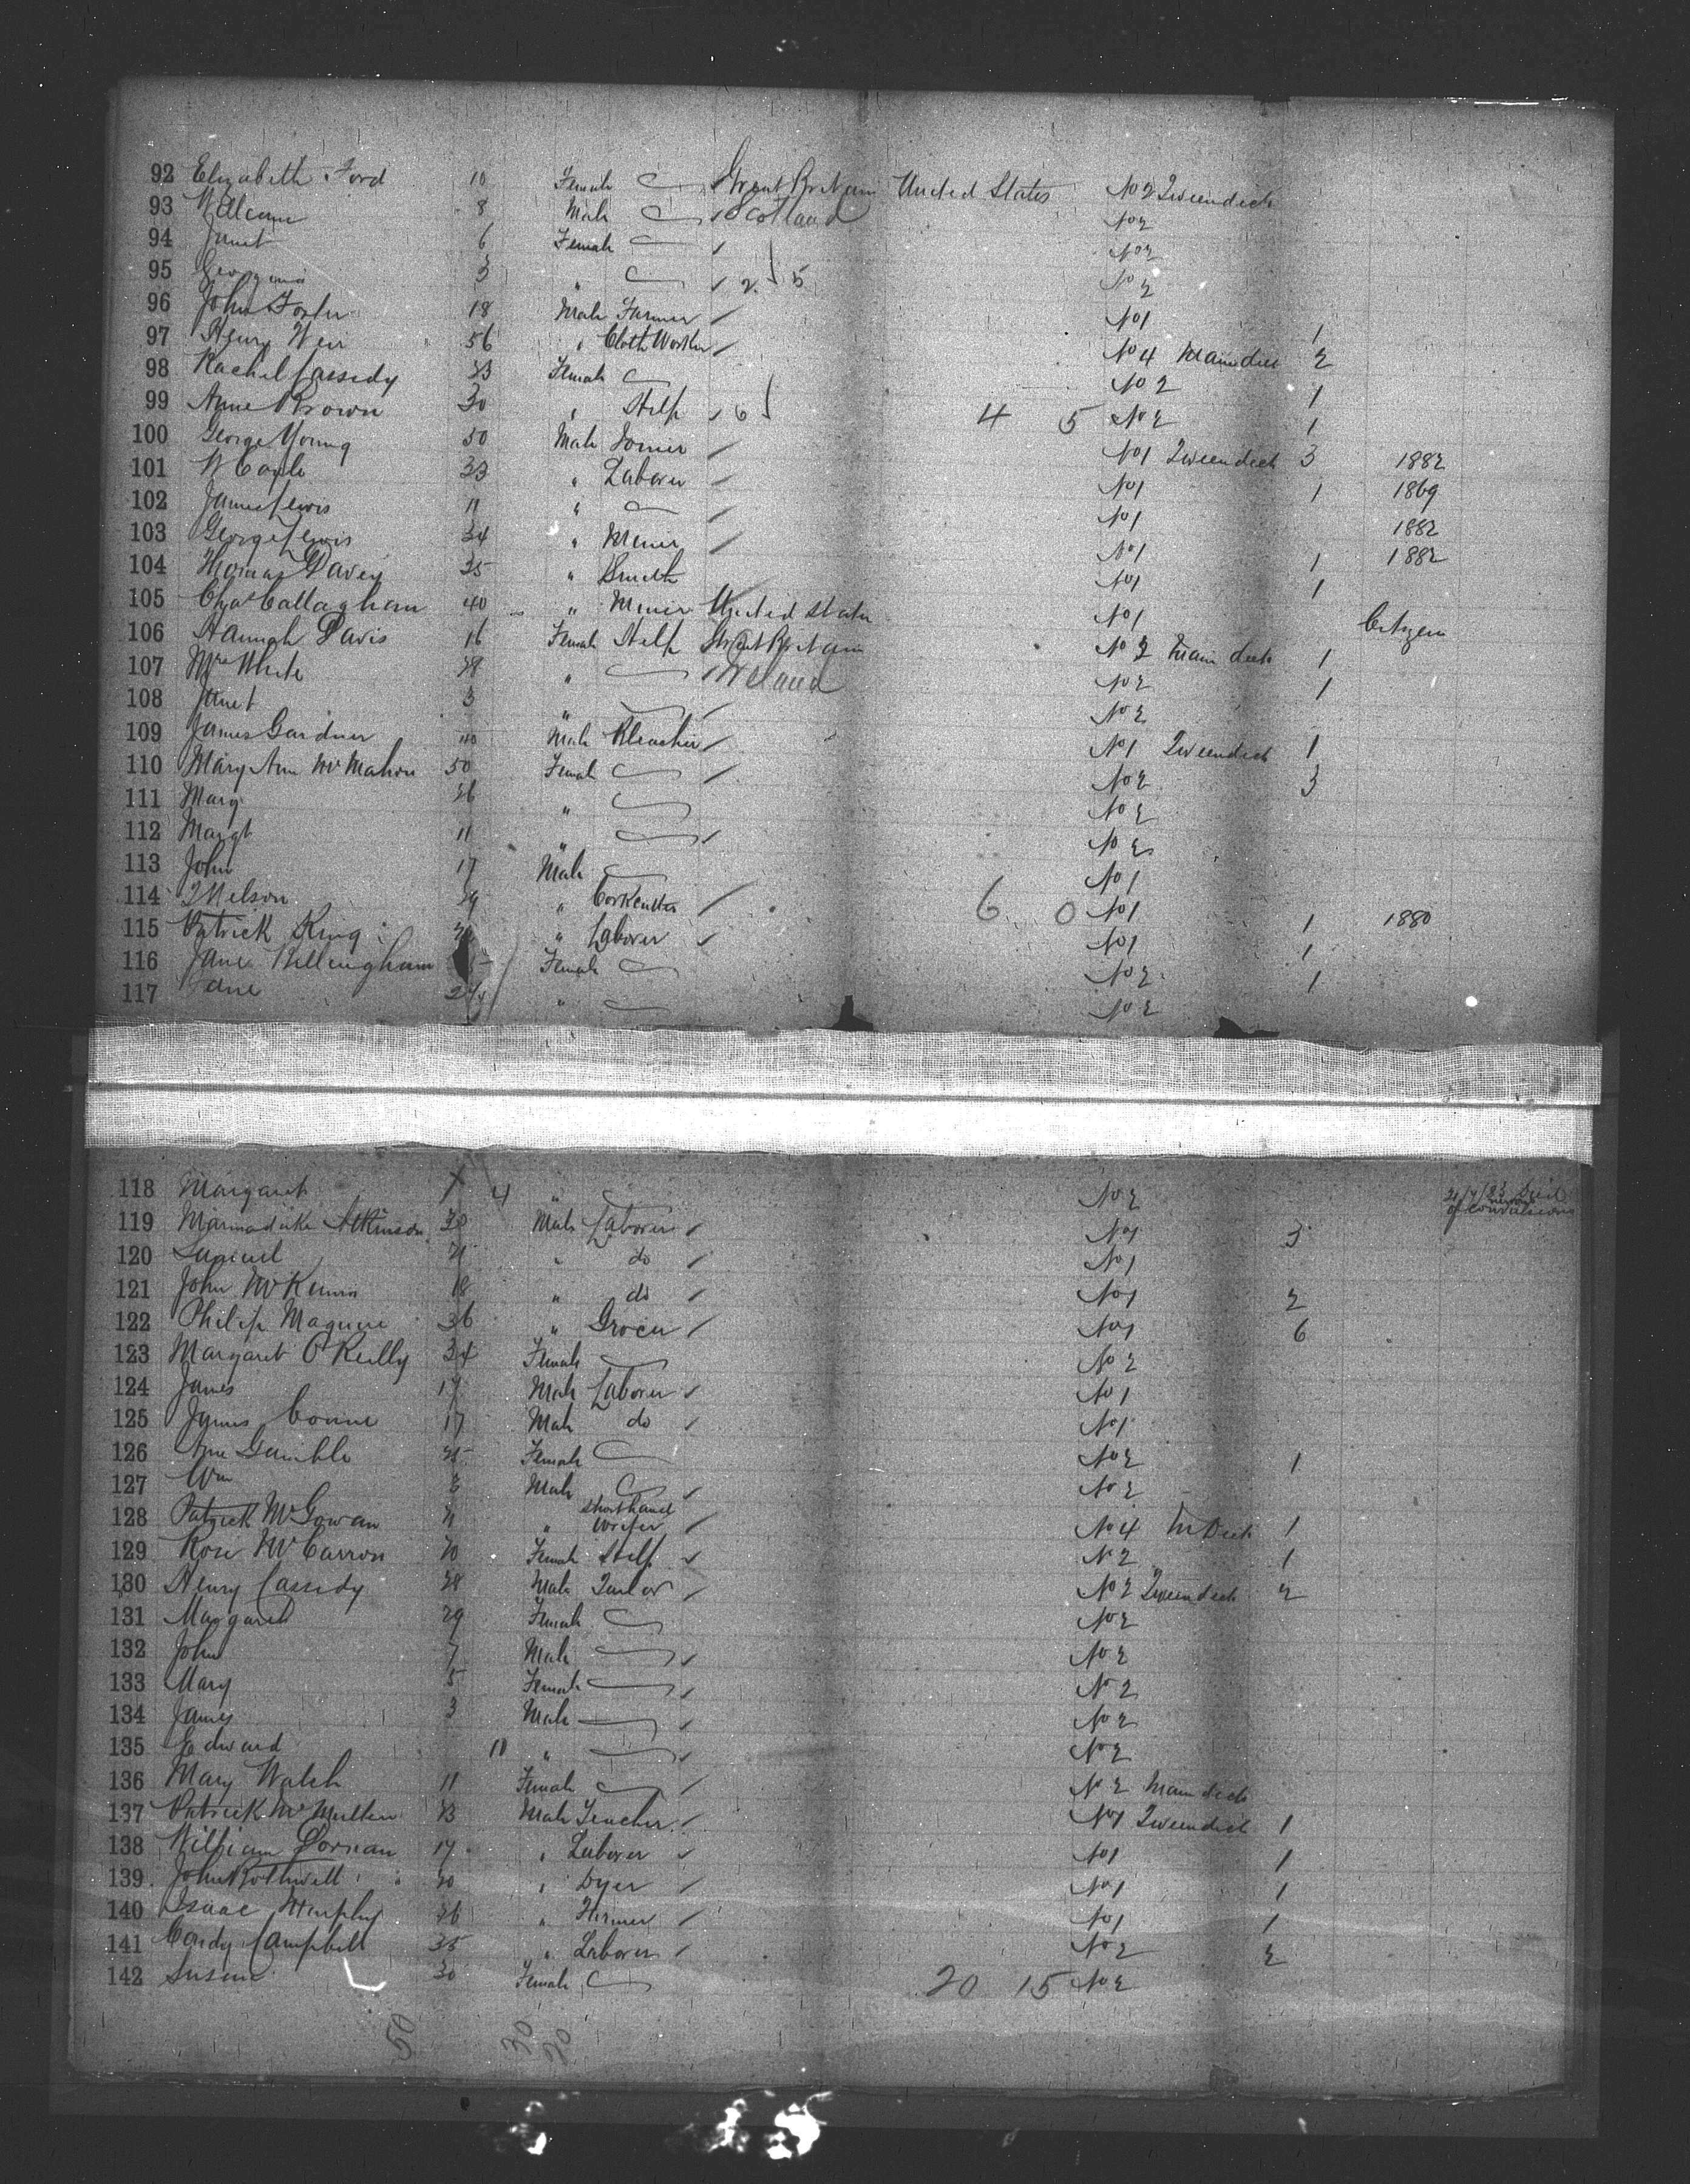 92 Elizabeth Ford 10 Female Great Britain United States No 2 Tweendeck
93 William 8 Male Scotland No 2
94 Janet 6 Female No 2
95 Georgina 3 " 2 } 5 No 2
96 John Foster 18 Male Farmer No 1
97 Henry Weir 56 " Cloth Worker No 4 Maindeck 1
98 Rachel Cassidy 23 Female No 2 2
99 Anne Brown 30 " Help 6 4 5 No 2 1
100 George Young 50 Male Joiner No 1 Tweendeck 1
101 W Coyle 33 " Laborer No 1 3 1882
102 James Lewis 11 " No 1 1 1869
103 George Lewis 34 " Miner No 1 1882
104 Thomas Davey 25 " Smith No 1 1 1882
105 Chas Callaghan 40 " Miner United States No 1 1 Citizen
106 Hannah Davis 16 Female Help Great Britain No 2 Main deck 1
107 Mrs White 28 " Ireland No 2 1
108 Janet 3 " No 2
109 James Gardner 40 Male Bleacher No 1 Tweendeck 1
110 Mary Ann McMahon 50 Female No 2 3
111 Mary 26 " No 2
112 Margt 11 " No 2
113 John 17 Male No 1
114 J Nelson 29 " Corkcutter 6 0 No 1 1 1880
115 Patrick King " Laborer No 1 1
116 Jane Bellingham Female No 2 1
117 Jane " No 2
118 Margaret 4 " No 2 Died of convulsions
119 Marmaduke Atkinson 30 Male Laborer No 1 3
120 Samuel 21 " do No 1
121 John McKenna 18 " do No 1 2
122 Philip Maguire 36 " Grocer No 1 6
123 Margaret O'Reilly 34 Female No 2
124 James 17 Male Laborer No 1
125 James 17 Male do No 1
126 Ann Gamble 25 Female No 2 1
127 Wm 3 Male No 2
128 Patrick McGowan 21 " Shorthand writer No 4 M Deck 1
129 Rose McCarron 20 Female Help No 2 " 1
130 Henry Cassidy 28 Male Tailor No 2 Tweendeck 2
131 Margaret 29 Female No 2
132 John 7 Male No 2
133 Mary 5 Female No 2
134 James 3 Male No 2
135 Edward 10 " No 2
136 Mary Walsh 11 Female No 2 Maindeck
137 Patrick McMullen 23 Male Teacher No 1 Tweendeck 1
138 William Dornan 17 " Laborer No 1 1
139 John Rothwell 20 " Dyer No 1 1
140 Isaac Murphy 26 " Farmer No 1 1
141 Condy Campbell 35 " Laborer No 2 2
142 Susan 30 Female 20 15 No 2
50 30 20